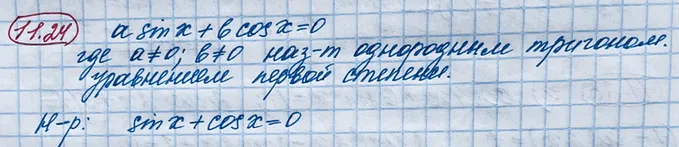 11.24 a sin x + b cos x = 0
где a ≠ 0; b ≠ 0 наз-т однородным тригоном.
уравнением первой степени.
Н-р: sin x + cos x = 0